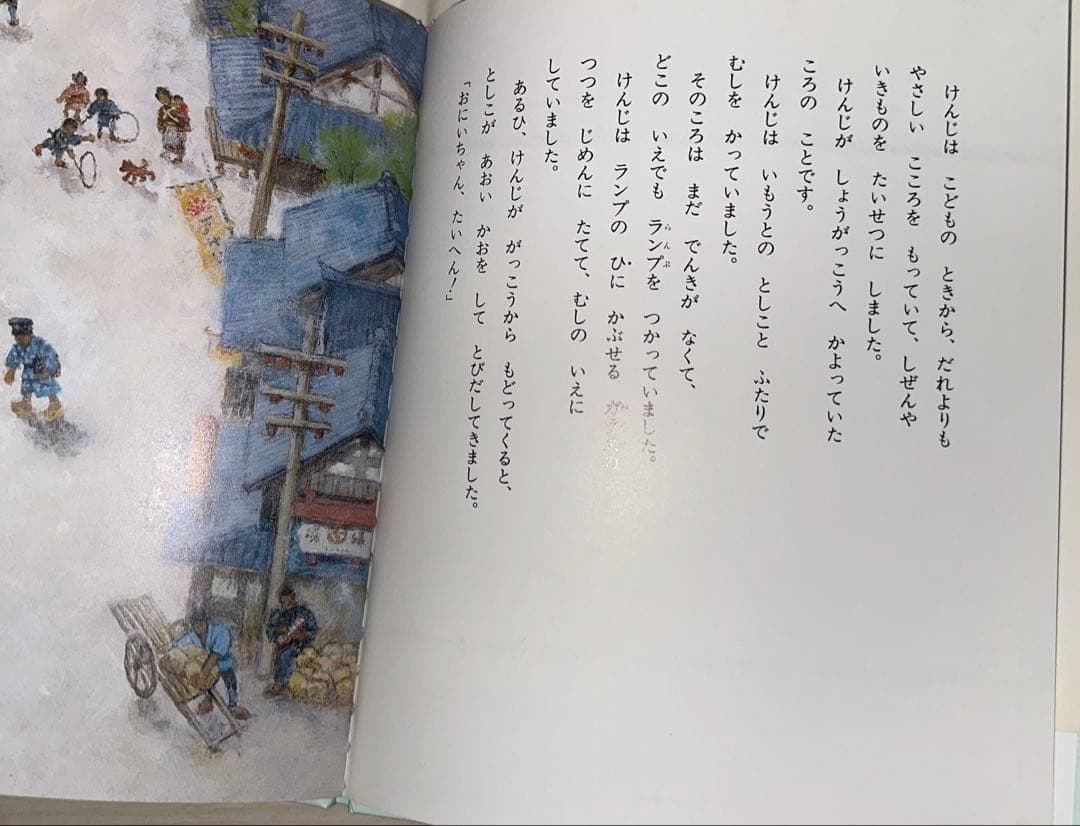 けんじは こどもの ときから、だれよりも
やさしい こころを もっていて、しぜんや
いきものを たいせつに しました。
けんじが しょうがっこうへ かよっていた
ころの ことです。
けんじは いもうとの としこと ふたりで
むしを かっていました。
そのころは まだ でんきが なくて、
どこの いえでも ランプを つかっていました。
らんぷ
けんじは ランプの ひに かぶせる
つつを じめんに たてて、むしの いえに
していました。
あるひ、けんじが がっこうから もどってくると、
としこが あおい かおを して とびだしてきました。
「おにいちゃん、たいへん！」